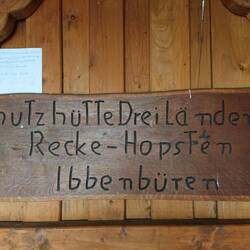 hutzhütte Dreiländer
Recke-Hopsten
Ibbenbüren